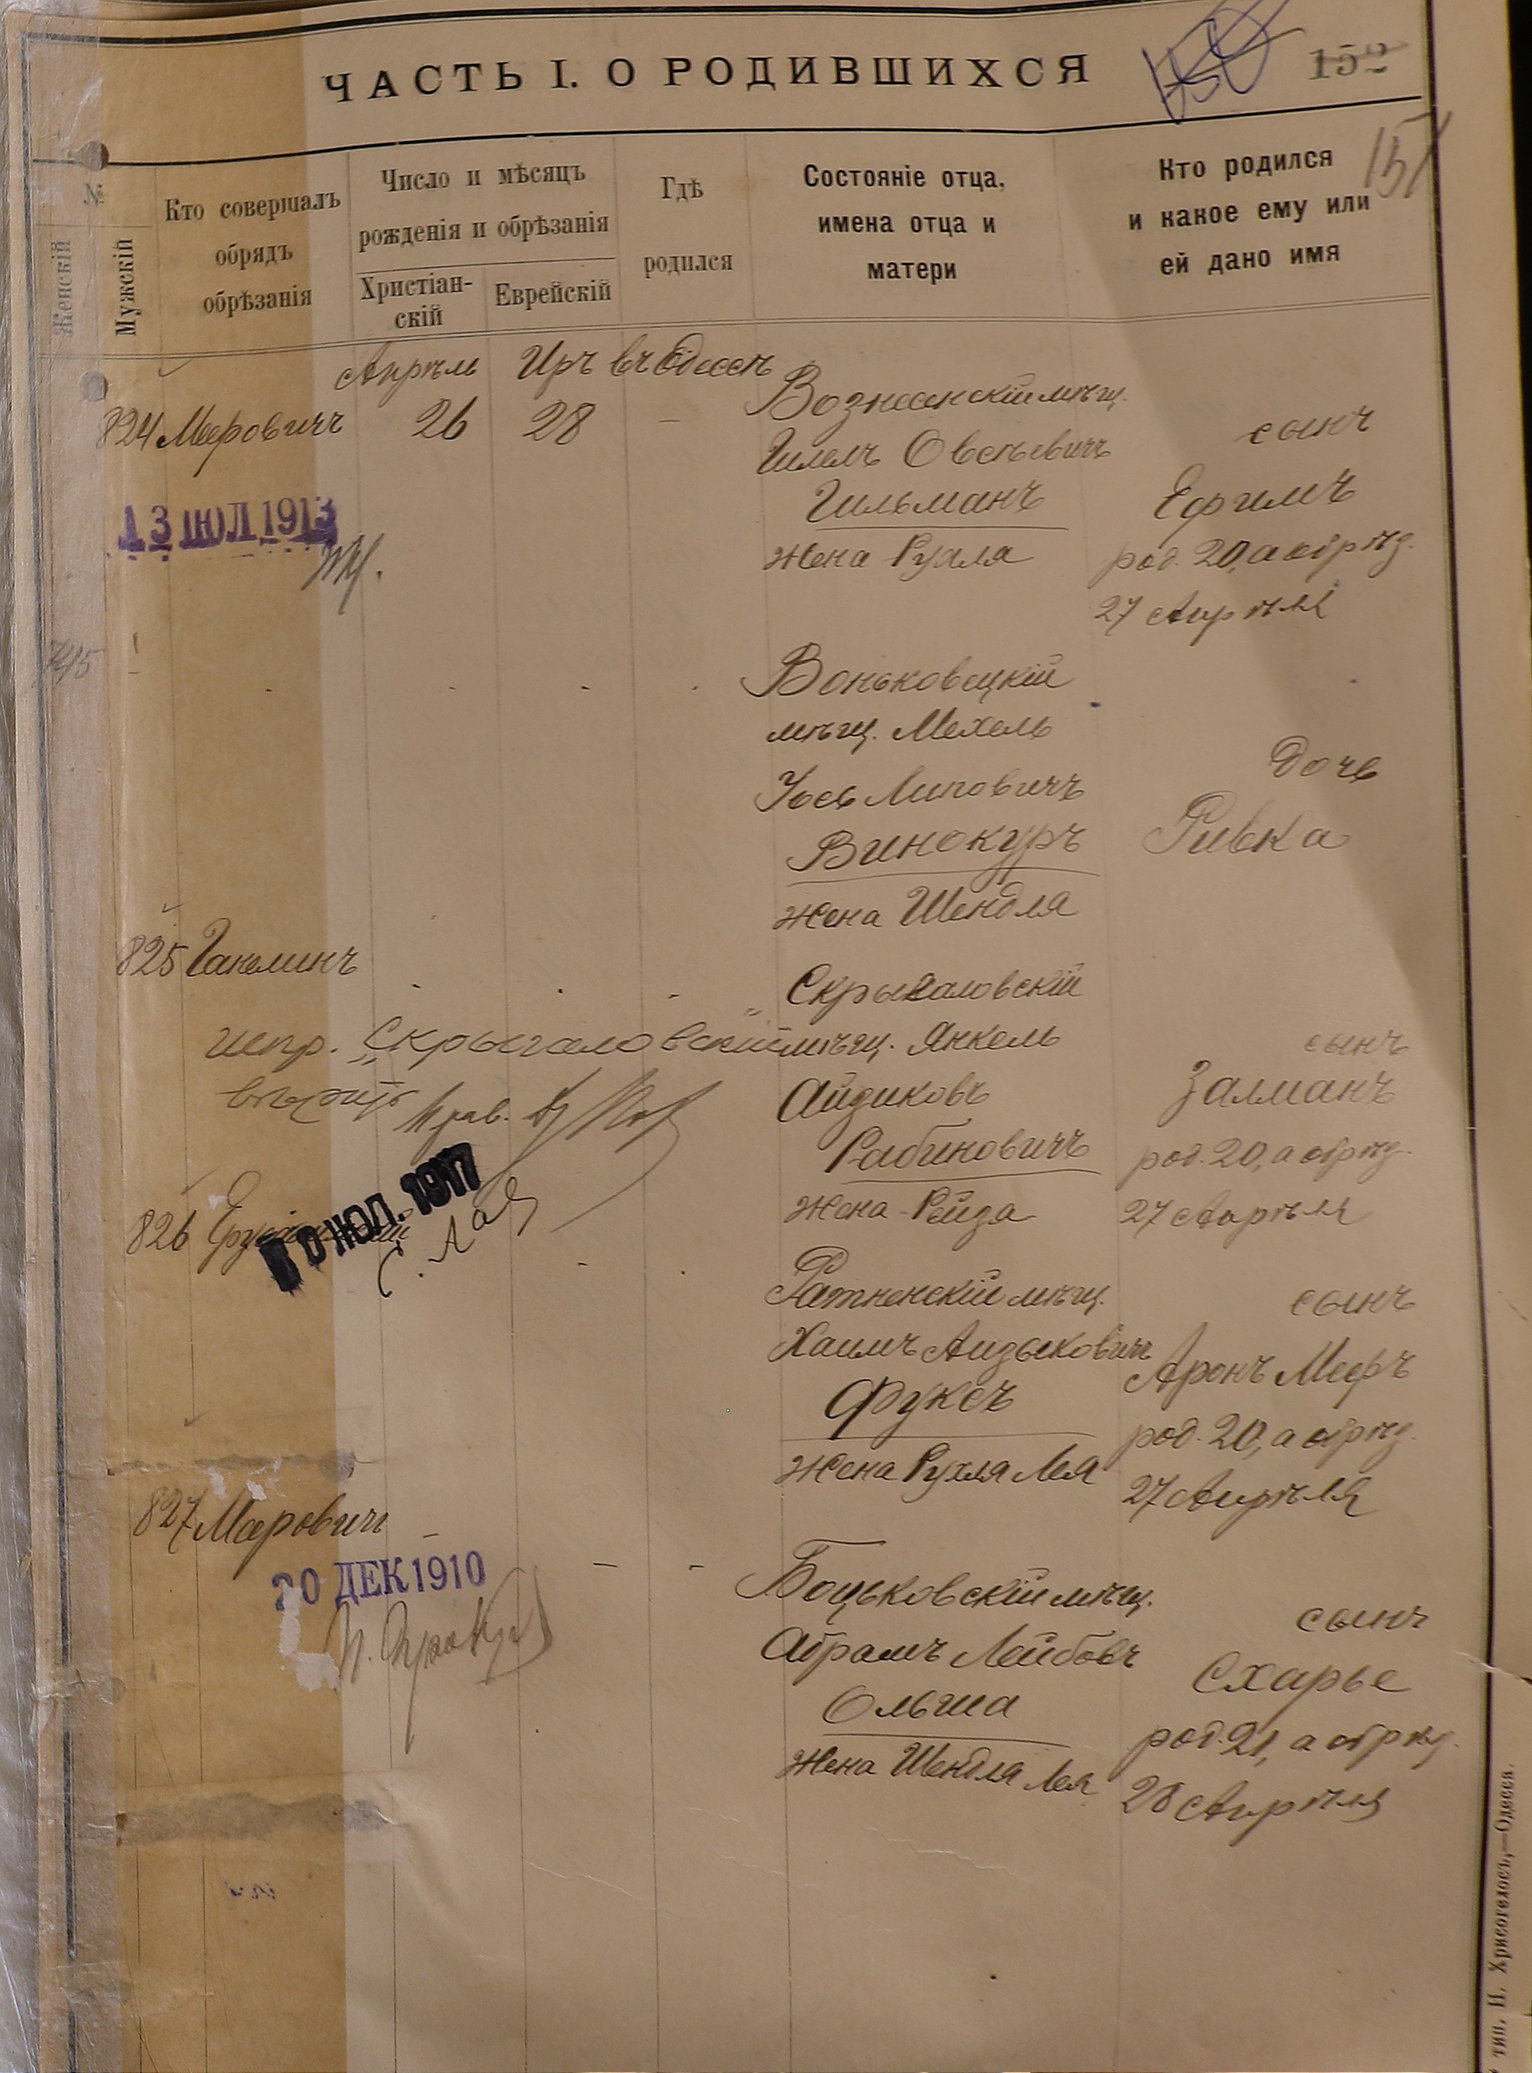 ЧАСТЬ I. О РОДИВШИХСЯ
152
151
№
Женскій
Мужскій
Кто совершалъ
обрядъ
обрѣзанія
Число и мѣсяцъ
рожденія и обрѣзанія
Христіан-
скій
Еврейскій
Гдѣ
родился
Состояніе отца,
имена отца и
матери
Кто родился
и какое ему или
ей дано имя
Апрѣль Иръ въ Одессѣ
824 Мееровичъ 26 28 —
Вознесенскій мѣщ.
Гилель Овсѣевичъ
Гильманъ
жена Рухля
сынъ
Ефимъ
род. 20, а обрѣз.
27 Апрѣля
13 ІЮЛ 1913
745
Воньковецкій
мѣщ. Мехель
Іось Липовичъ
Винокуръ
жена Шендля
дочь
Ривка
825
Скрыгаловскій
мѣщ. Янкель
Айзиковъ
Рабиновичъ
жена Рейза
сынъ
Залманъ
род. 20, а обрѣз.
27 Апрѣля
испр. „Скрыгаловскій“
вѣрить
826
ИЮЛ. 1917
Ратненскій мѣщ.
Хаимъ Аизыковичъ
Фуксъ
жена Рухля Лея
сынъ
Аронъ Мееръ
род. 20, а обрѣз.
27 Апрѣля
827 Мееровичъ
20 ДЕК 1910
Боцьковскій мѣщ.
Абрамъ Лейбовъ
Ольша
жена Шендля Лея
сынъ
Схарье
род. 21, а обрѣз.
28 Апрѣля
тип. Н. Хрисогелосъ,—Одесса.